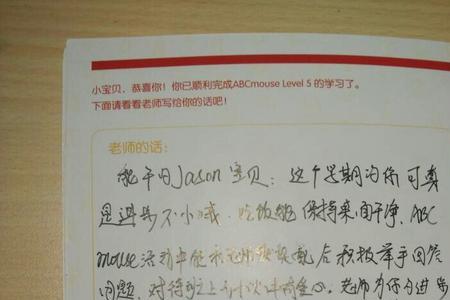 小宝贝，恭喜你！你已顺利完成ABCmouse Level 5 的学习了。
下面请看看老师写给你的话吧！
老师的话：
能干的Jason宝贝：这个学期的你可真
是进步不小哦，吃饭能保持桌面干净，ABC
mouse活动中能和老师积极举手回答
问题，对待班上的小伙伴有爱心。老师为你的进步